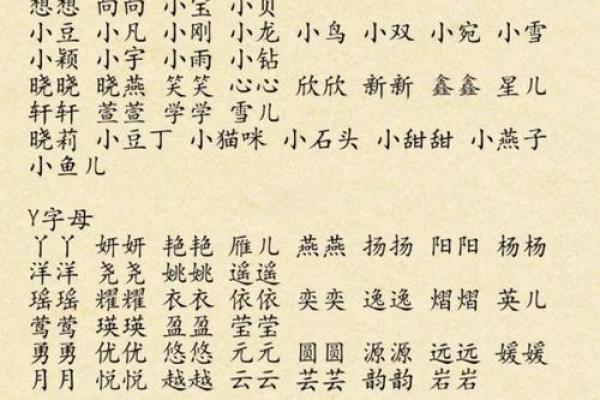 想想 向向 小宝 小贝
小豆 小凡 小刚 小龙 小鸟 小双 小宛 小雪
小颖 小宇 小雨 小钻
晓晓 晓燕 笑笑 心心 欣欣 新新 鑫鑫 星儿
轩轩 萱萱 学学 雪儿
晓莉 小豆丁 小猫咪 小石头 小甜甜 小燕子
小鱼儿
Y字母
丫丫 妍妍 艳艳 雁儿 燕燕 扬扬 阳阳 杨杨
洋洋 尧尧 姚姚 遥遥
瑶瑶 耀耀 衣衣 依依 奕奕 逸逸 熠熠 英儿
莺莺 瑛瑛 盈盈 莹莹
勇勇 优优 悠悠 元元 圆圆 源源 远远 媛媛
月月 悦悦 越越 云云 芸芸 韵韵 岩岩